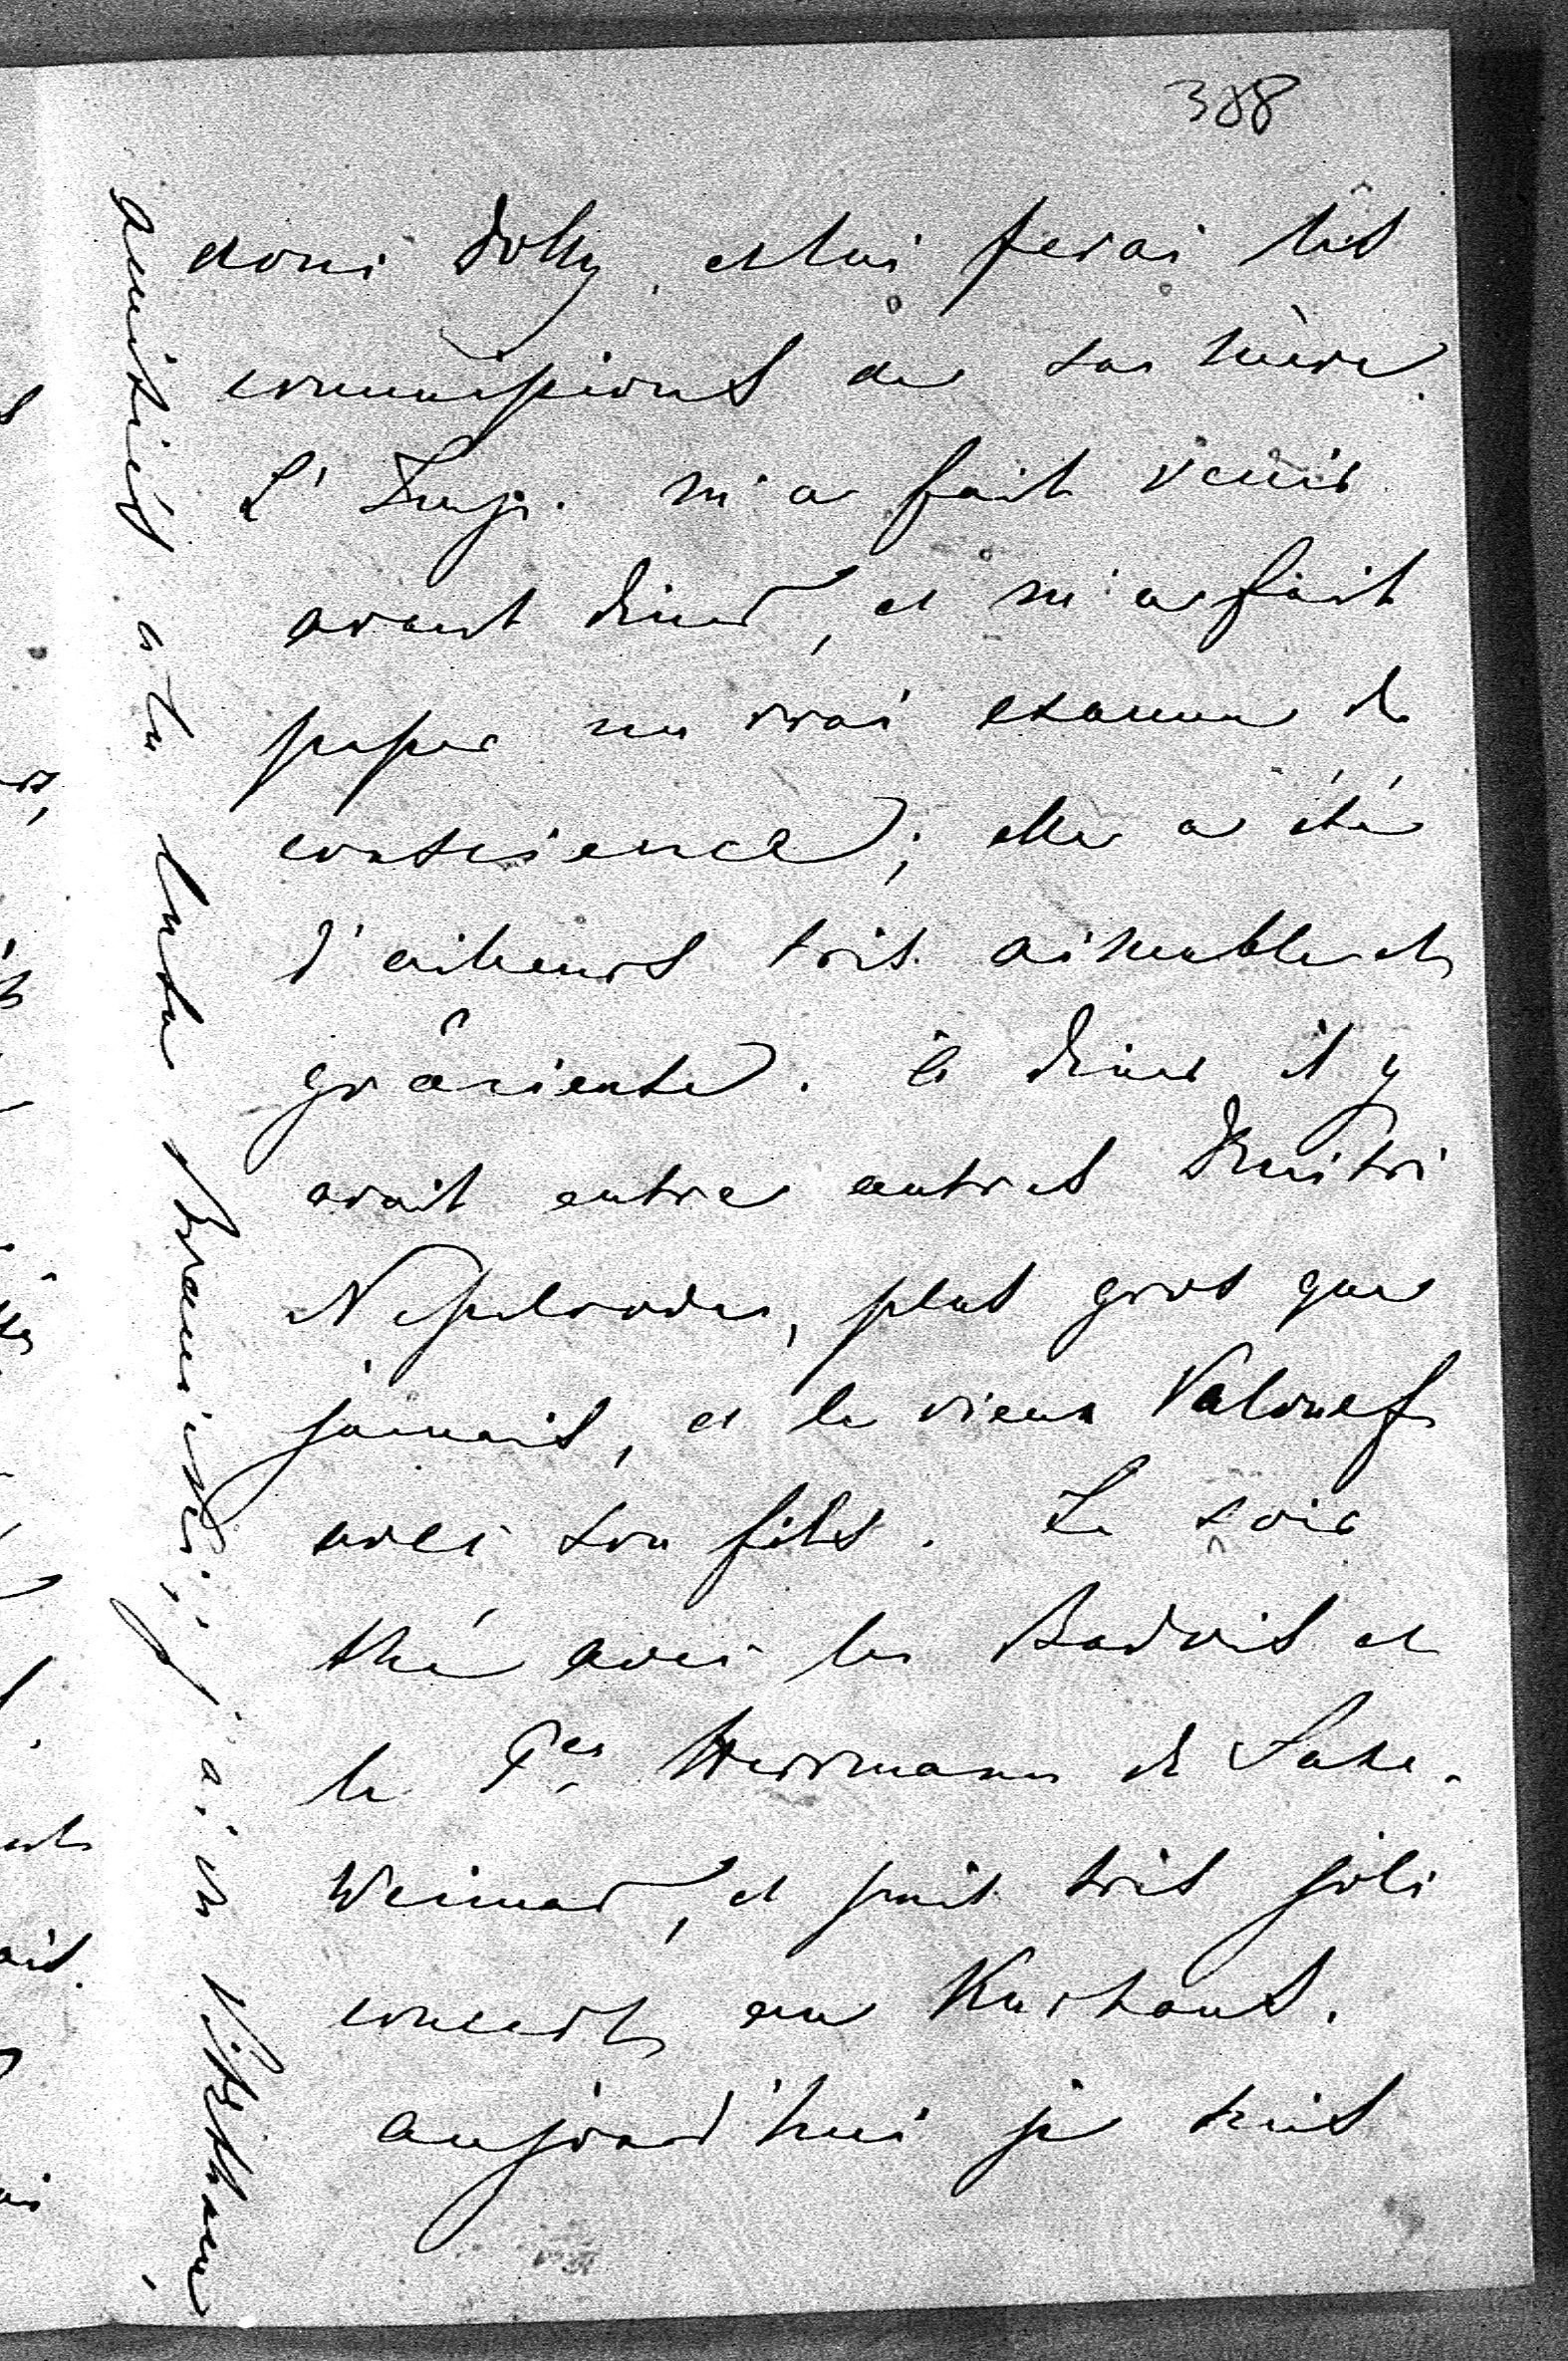 388
donc Dolly et lui ferai les
commissions de sa mère.
L'Imp. m'a fait venir
avant diner, et m'a fait
passer un vrai examen de
conscience; elle a été
d'ailleurs très aimable et
grâcieuse. à diner il y
avait entre autres Dmitri
plus gros que
jamais, et le vieux Valouef
avec son fils. Le soir
thé avec les Badois et
le Pce Herrmann de Saxe-
Weimar, et puis très joli
concert au Kurhaus.
aujourd'hui je suis
amitiés